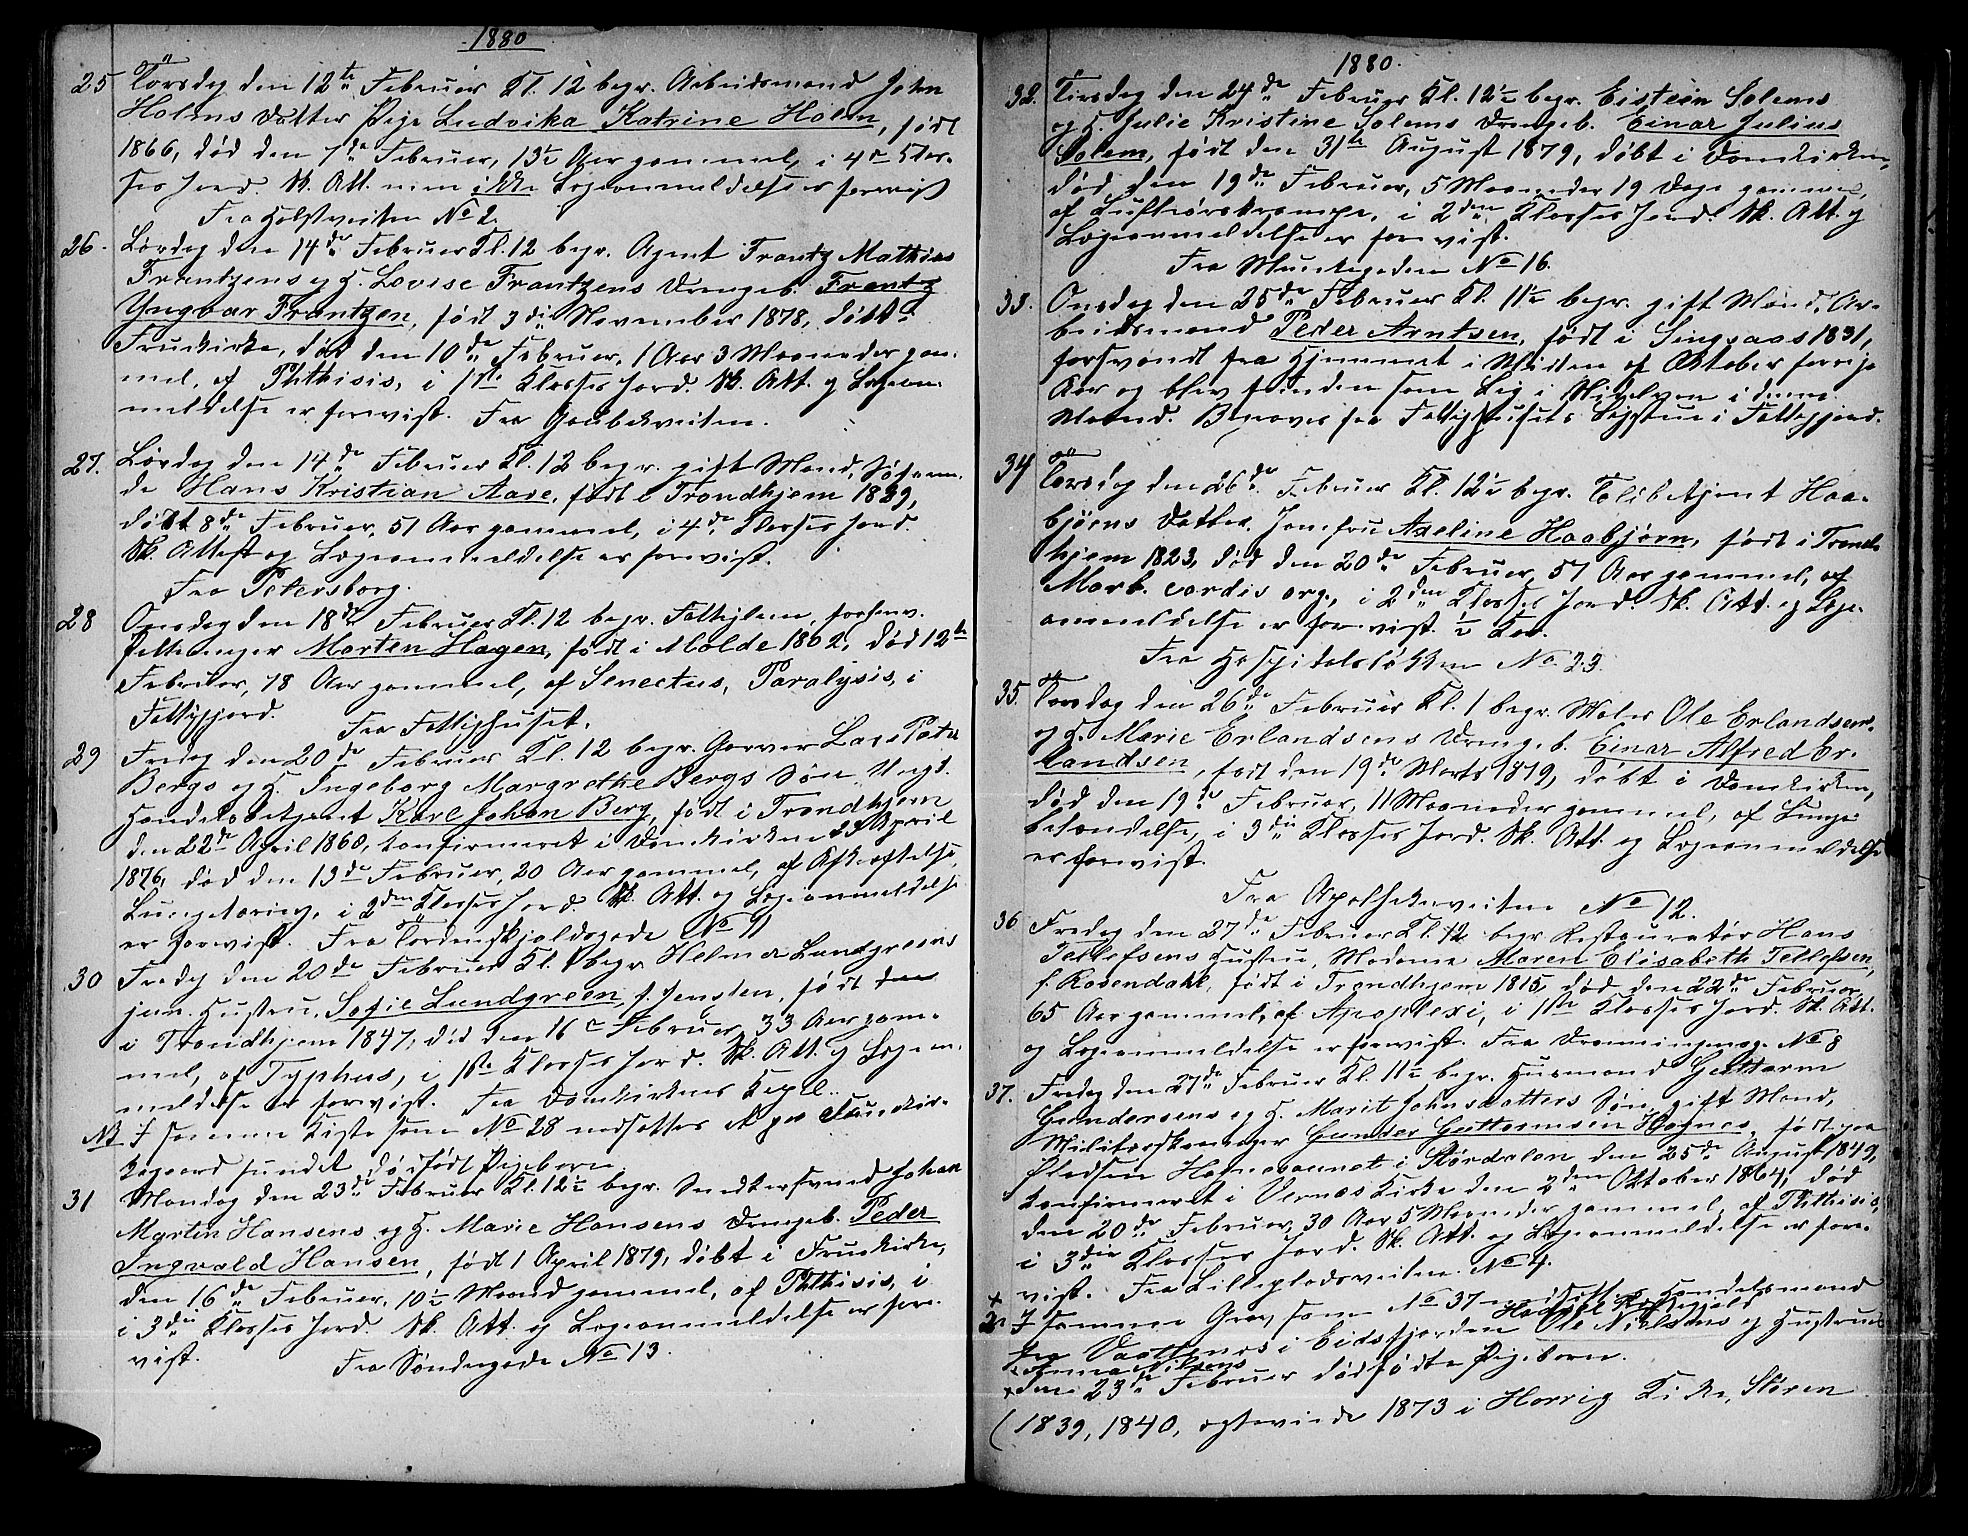 1880
25 Torsdag den 12te Februar Kl. 12 begr. Arbeidsmand John
Holms Datter Pige Ludvika Katrine Holm, født
1866, død den 7de Februar, 13½ Aar gammel, i 4de Klas-
ses Jord. Sk. Att. men ikke Lægeanmeldelse er forevist
Fra Holstveiten No 2.
26. Lørdag den 14de Februar Kl. 12 begr. Agent Frantz Mathias
Frantzens og H. Lovise Frantzens Drengeb. Frantz
Yngvar Frantzen, født 3die November 1878, døbt i
Fruekirke, død den 10de Februar, 1 Aar 3 Maaneder gam-
mel, af Phthisis, i 1ste Klasses Jord. Sk. Att. og Lægean-
meldelse er forevist. Fra Gaubekveiten.
27. Lørdag den 14de Februar Kl. 12 begr. gift Mand,
Hans Kristian Aase, født i Trondhjem 1829,
8de Februar, 51 Aar gammel, i 4de Klasses Jord.
Sk. Attest og Lægeanmeldelse er forevist.
Fra Petersborg.
28 Onsdag den 18de Februar Kl. 12 begr. Fattiglem, forhenv.
Morten Hagen, født i Molde 1802, død 12te
Februar, 78 Aar gammel, af Senectus, Paralysis, i
Fattigjord. Fra Fattighuset.
29 Fredag den 20de Februar Kl. 12 begr. Garver Lars Peter
Bergs og H. Ingeborg Margrethe Bergs Søn Ungk.
Handelsbetjent Karl Johan Berg, født i Trondhjem
den 22de April 1860, konfirmeret i Domkirken 23 April
1876, død den 13de Februar, 20 Aar gammel, af
Lungetæring, i 2den Klasses Jord. Sk. Att. og Lægeanmeldelse
er forevist. Fra Tordenskjoldsgade No 11
30 Fredag den 20de Februar Kl. 1 begr. Helmer Lundgreens
jun. Hustru, Sofie Lundgreen, f. Jenssen, født
i Trondhjem 1847, død den 16de Februar, 33 Aar gam-
mel, af Typhus, i 1ste Klasses Jord. Sk. Att. og Lægean-
meldelse er forevist. Fra Domkirkens Kapel.
NB I samme Kiste som No 28 nedsattes paa Fruekir-
kegaard fundet dødfødt Pigebarn
31 Mandag den 23de Februar Kl. 12½ begr. Snedkersvend Johan
Martin Hansens og H. Marie Hansens Drengeb. Peder
Ingvald Hansen, født 1 April 1879, døbt i Fruekirke,
den 16de Februar, 10½ Maaned gammel, af Phthisis, i
i 3die Klasses Jord. Sk. Att. og Lægeanmeldelse er fore-
vist. Fra Søndregade No 13.
1880.
32. Tirsdag den 24de Februar Kl. 12½ begr. Eistein Solems
og H. Julie Kristine Solems Drengeb. Einar Julius
Solem, født den 31te August 1879, døbt i Domkirken,
død den 19de Februar, 5 Maaneder 19 Dage gammel,
af Luftrørskrampe, i 2den Klasses Jord. Sk. Att. og
Lægeanmeldelse er forevist.
Fra Munkegaden No 16.
33. Onsdag den 25de Februar Kl. 11½ begr. gift Mand, Ar-
beidsmand Peder Arntsen, født i Singsaas 1831,
forsvandt fra Hjemmet i Midten af Oktober forrige
Aar og blev funden som Lig i Nidelven i denne
Maaned. Begraves fra Fattighusets Ligstue i Fattigjord.
34 Torsdag den 26de Februar Kl. 12½ begr. Toldbetjent Haa-
bjørns Datter, Jomfru Axeline Haabjørn, født i Trond-
hjem 1823, død den 20de Februar, 57 Aar gammel, af
Morb. cordis org., i 2den Klasses Jord. Sk. Att. og Læge-
anmeldelse er forevist. ½ Kar.
Fra Hospitalsløkken No 23
35. Torsdag den 26de Februar Kl. 1 begr. Maler Ole Erlandsens
og H. Marie Erlandsens Drengeb. Einar Alfred Er-
landsen, født den 19de Marts 1879, døbt i Domkirken,
død den 19de Februar, 11 Maaneder gammel, af Lunge-
betændelse, i 3die Klasses Jord. Sk. Att. og Lægeanmeldelse
er forevist.
Fra Apothekerveiten No 12.
36 Fredag den 27de Februar Kl. 12 begr. Restauratør Hans
Tellefsens Hustru, Madame Maren Elisabeth Tellefsen,
f. Rosendahl, født i Trondhjem 1815, død den 22de Februar,
65 Aar gammel, af Apoplexi, i 1ste Klasses Jord. Sk. Att.
og Lægeanmeldelse er forevist. Fra Dronningensg. No 8
37. Fredag den 27de Februar Kl. 11½ begr. Husmand Guttorm
Gundersens og H. Marit Johnsdatters Søn, gift Mand,
Militærskomager Gunder Guttormsen Hognes, født paa
Pladsen i Størdalen den 25de August 1849,
konfirmeret i Vernes Kirke den 2den Oktober 1864, død
den 20de Februar, 30 Aar 5 Maaneder gammel, af Phthisis,
i 3die Klasses Jord. Sk. Att. og Lægeanmeldelse er fore-
vist. Fra Lillepladsveiten No 4.
+ I samme Grav som No 37 nedsattes Handelsmand
fra i Eidsfjorden Ole Nielsens og Hustrues
Anna Nilsens
+ den 23de Februar dødfødte Pigebarn.
(1839, 1840, egteviede 1873 i Horrig Kirke, Støren